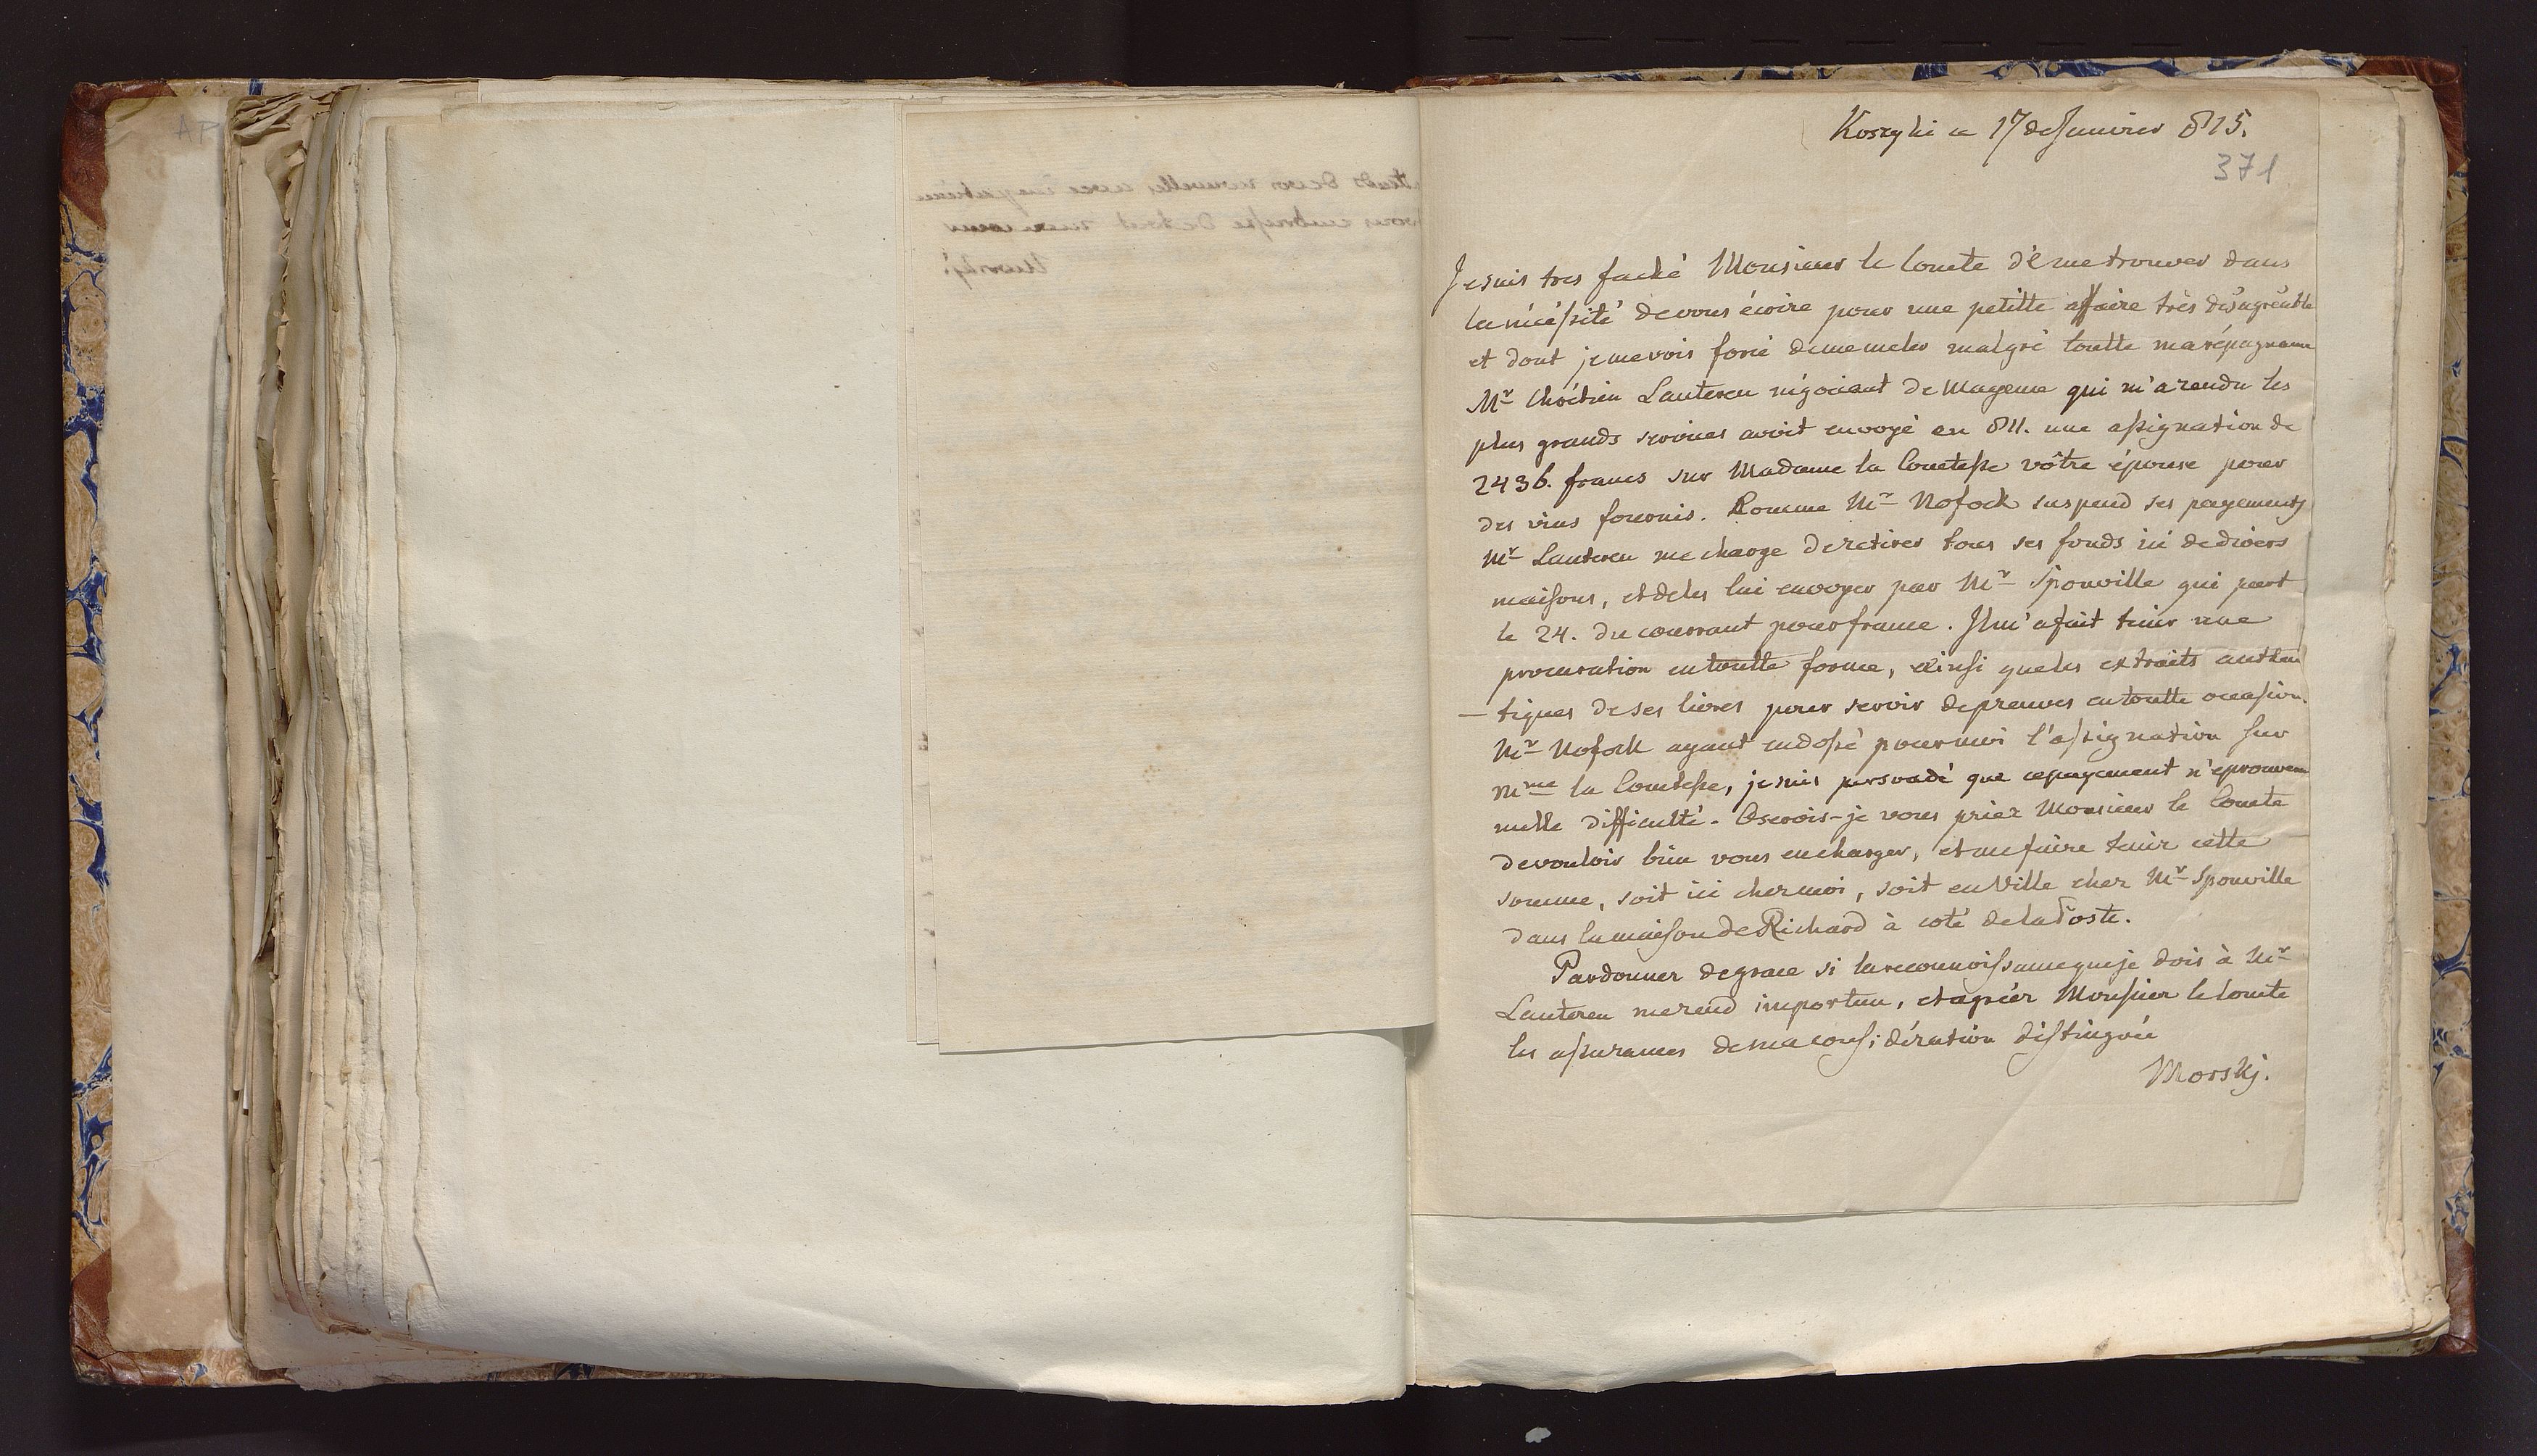 Koszyki ce 17 de Janvier 815.
371
Je suis tres faché Monsieur le Comte d'é me trouver dans
la nécéssité de vous écrire pour une petitte affaire très désagréable
et dont je me vois forcé de me meler malgré toutte ma répugnance
Mr Chrétien Lauteren négociant de Mayence qui m'a rendu les
plus grands services avoit envoyé en 811. une assignation de
2436. francs sur Madame la Comtesse vôtre épouse pour
des vins fournis. Comme Mr Nofock suspend ses payements
Mr Lauteren me charge de retirer tous ses fonds ici de divers
maisons, et de les lui envoyer par Mr Sponville qui part
le 24. du courrant pour france. Il m'a fait tenir une
procuration en toutte forme, ainsi que les extraits authen
-tiques de ses livres pour servir de preuves en toutte occasion.
Mr Nofock ayant endossé pour moi l'assignation sur
Mme la Comtesse, je suis persvadé que ce payement n'eprouvera
nulle difficulté. Oserois-je vous prier Monsieur le Comte
de vouloir bien vous en charger, et me faire tenir cette
somme, soit ici chez moi, soit en Ville chez Mr Sponville
dans la maison de Richard à coté de la Poste.
Pardonnez de grace si la reconnoissance que je dois à Mr
Lauteren me rend importun, et agréez Monsieur le Comte
les assurances de ma considération distinguée
Morskj.